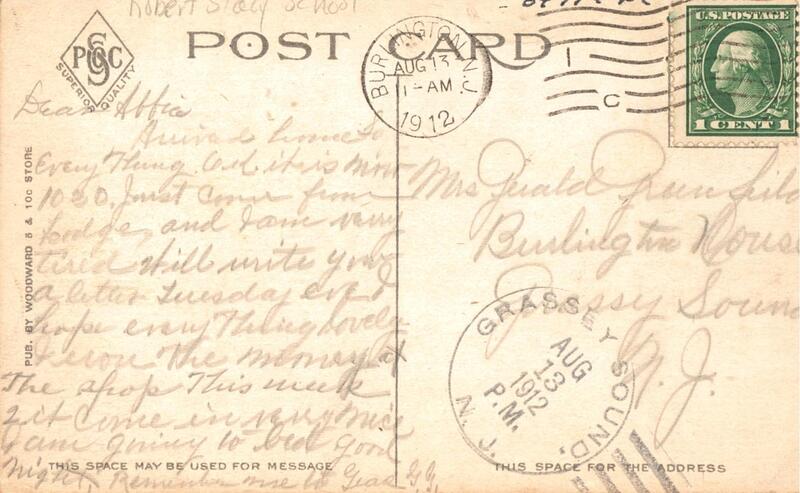 Robert Stacy School
P S C
SUPERIOR QUALITY
POST CARD
BURLINGTON, N.J.
AUG 13
11-AM
1912
C
U.S. POSTAGE
1 CENT 1
Dear Abbie
Arrived home So
Every Thing O.K. it is now
10 30, Just Come from
Lodge, and I am very
tired Will write you
a letter Tuesday eve I
hope every Thing lovely
The money at
The shop This week
& it Come in very Nice
I am going to bed good
Night, Remember me to G.G.
Mrs Gerald Greenfield
Burlington House
Grassy Sound
N. J.
GRASSEY SOUND.
AUG
13
1912
P.M.
N. J.
PUB. BY WOODWARD 5 & 10c STORE
THIS SPACE MAY BE USED FOR MESSAGE
THIS SPACE FOR THE ADDRESS